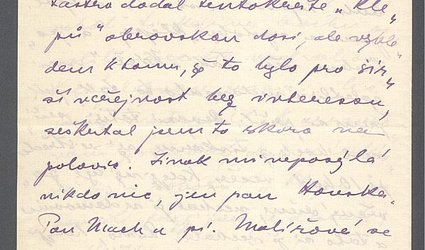 dodal tentokráte „Kle-
pů“ obrovskou dosi, ale vzhle-
dem k tomu, že to bylo pro šir-
ší veřejnost bez interesu,
seškrtal jsem to skoro na
polovic. Jinak mi neposýlá
nikdo nic, jen pan Houska.
Pan Mach a pí. Malířová se